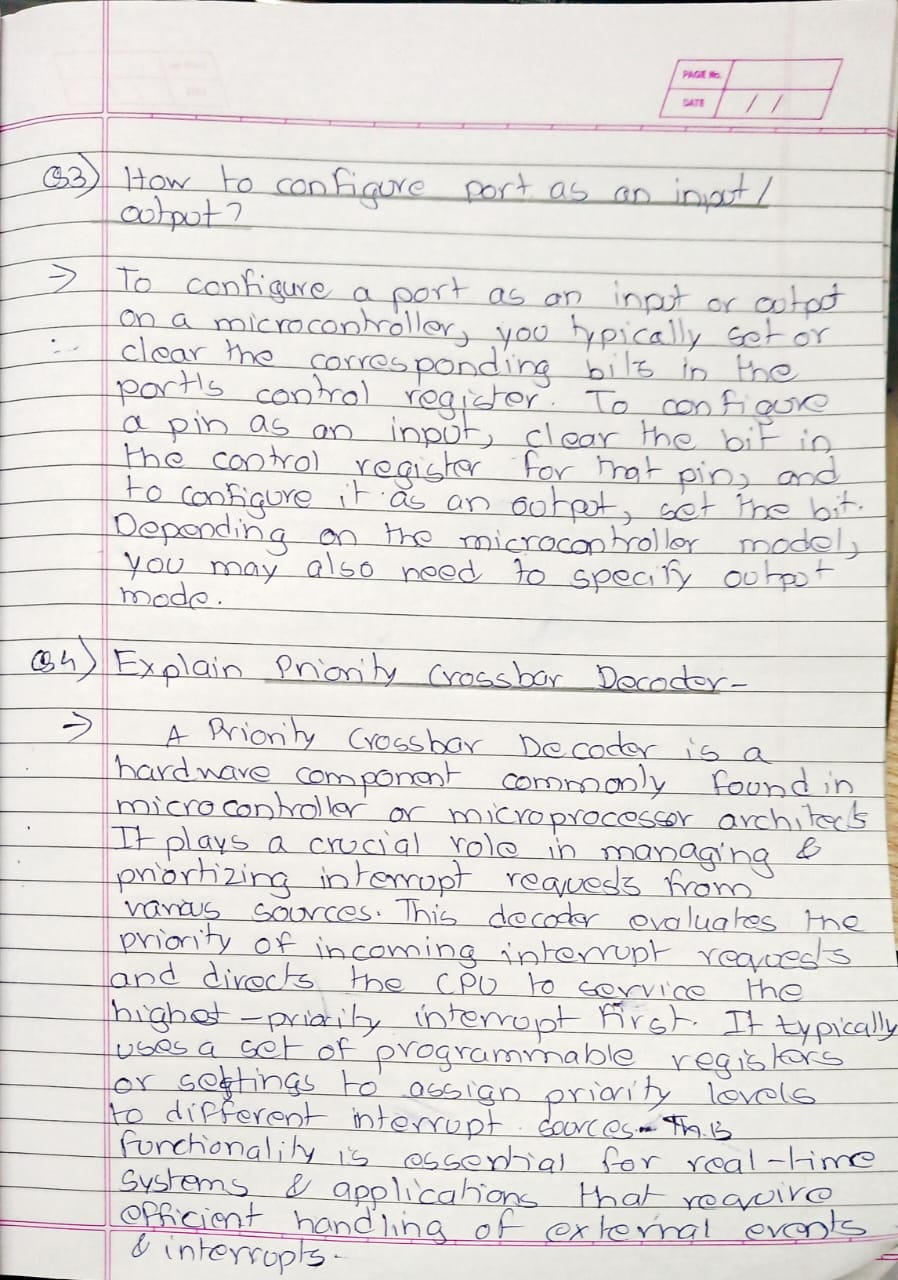 PAGE No.
DATE / /
Q3) How to configure port as an input/
output?
⇒ To configure a port as an input or output
on a microcontroller, you typically set or
clear the corresponding bits in the
port's control register. To configure
a pin as an input, clear the bit in
the control register for that pin, and
to configure it as an output, set the bit.
Depending on the microcontroller model,
you may also need to specify output
mode.
Q4) Explain Priority Crossbar Decoder-
⇒ A Priority Crossbar Decoder is a
hardware component commonly found in
microcontroller or microprocessor architects
It plays a crucial role in managing &
priortizing interrupt requests from
varous sources. This decoder evaluates the
priority of incoming interrupt requests
and directs the CPU to service the
highest-priority interrupt first. It typically
uses a set of programmable registers
or settings to assign priority levels
to different interrupt sources. This
functionality is essential for real-time
systems & applications that require
efficient handling of external events
& interrupts.